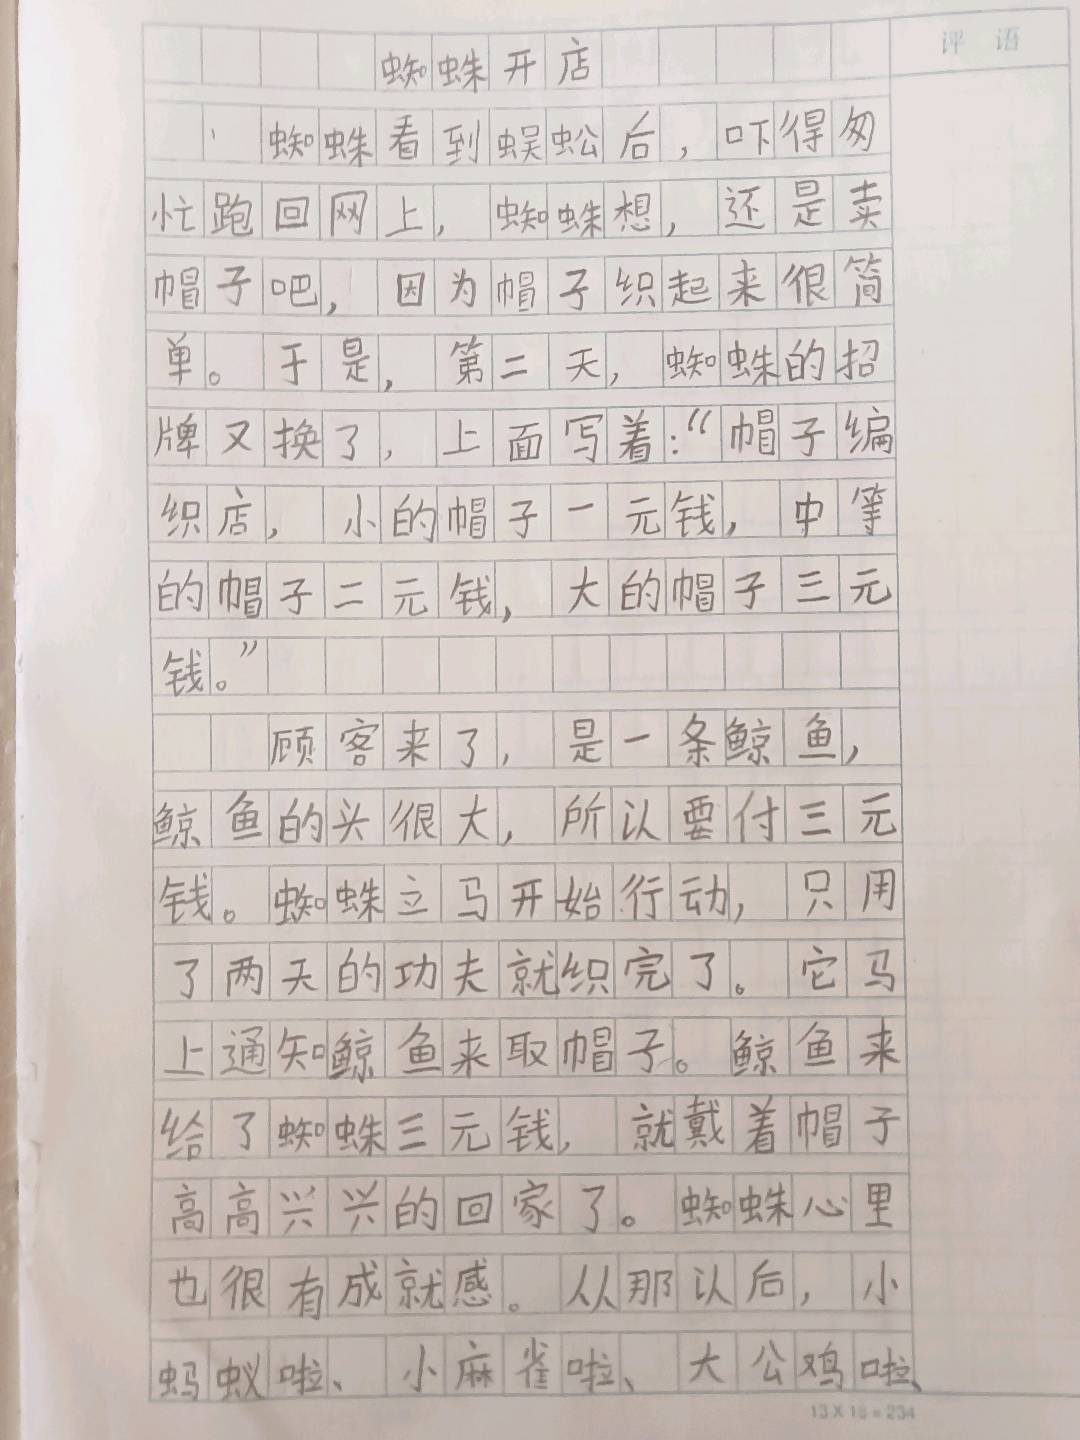 评 语
蜘蛛开店
蜘蛛看到蜈蚣后，吓得匆
忙跑回网上，蜘蛛想，还是卖
帽子吧，因为帽子织起来很简
单。于是，第二天，蜘蛛的招
牌又换了，上面写着：“帽子编
织店，小的帽子一元钱，中等
的帽子二元钱，大的帽子三元
钱。”
顾客来了，是一条鲸鱼，
鲸鱼的头很大，所以要付三元
钱。蜘蛛立马开始行动，只用
了两天的功夫就织完了。它马
上通知鲸鱼来取帽子。鲸鱼来
给了蜘蛛三元钱，就戴着帽子
高高兴兴的回家了。蜘蛛心里
也很有成就感。从那以后，小
蚂蚁啦、小麻雀啦、大公鸡啦、
13×18=234